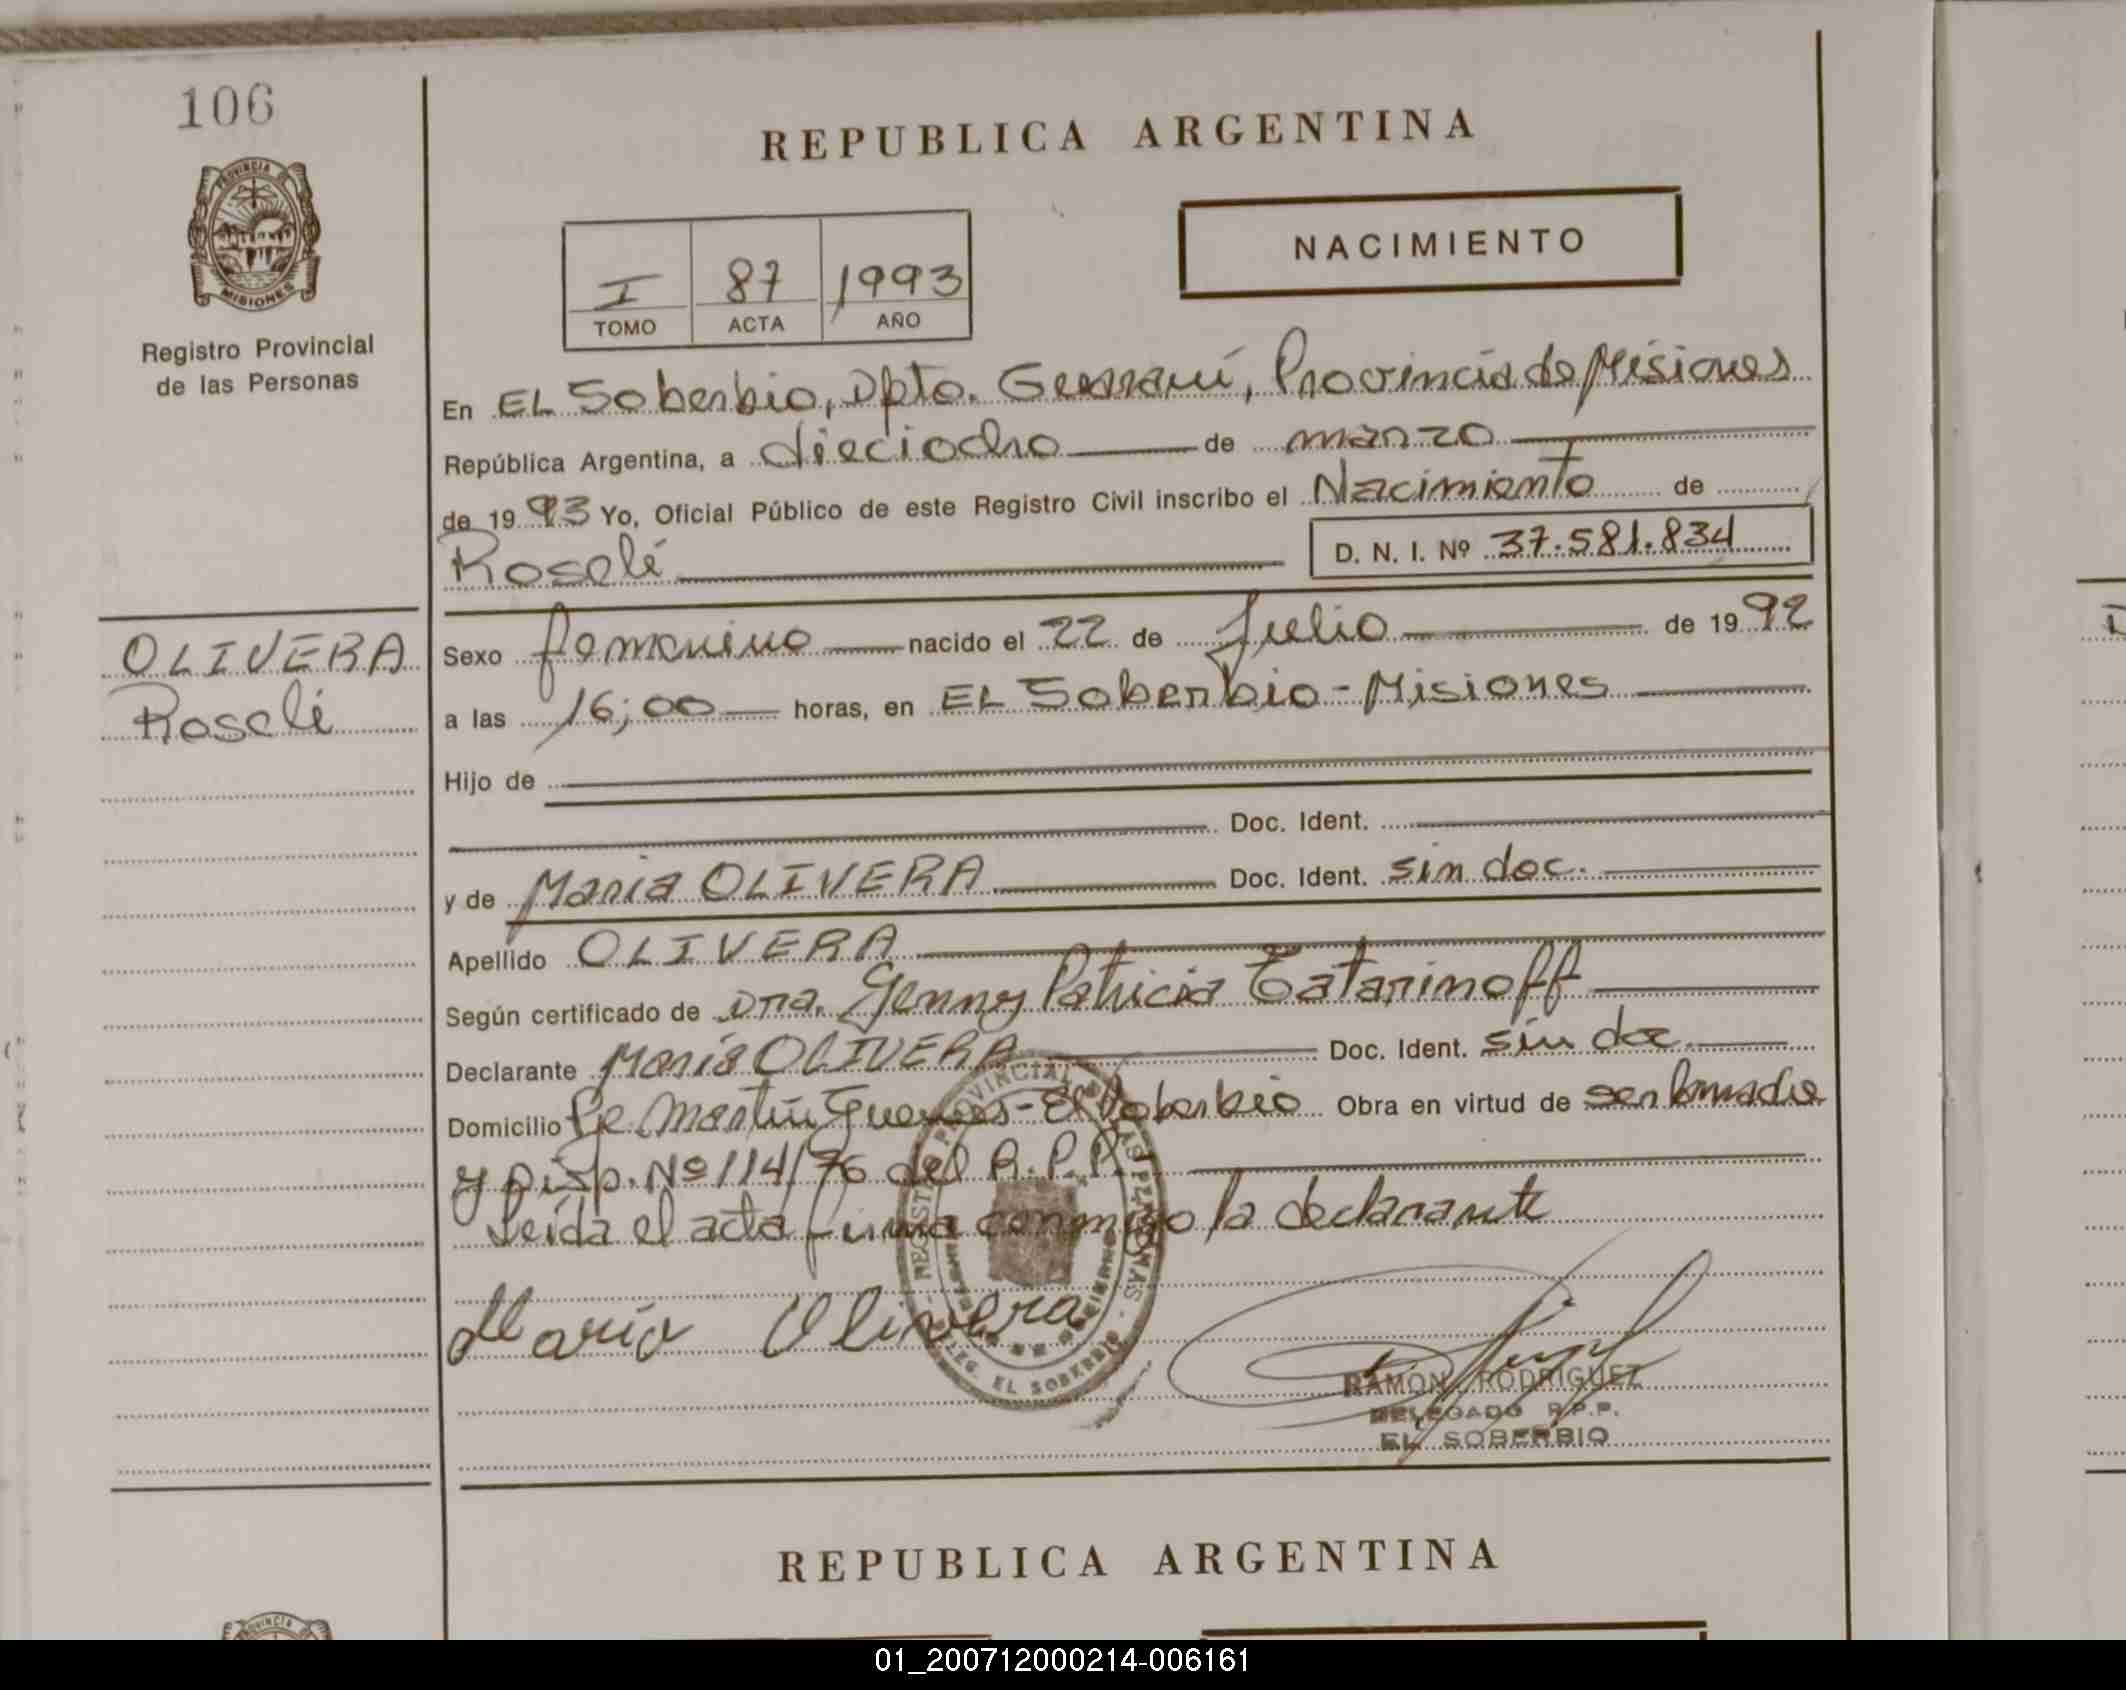 106
REPUBLICA ARGENTINA
PROVINCIA DE
MISIONES
NACIMIENTO
I 87 1993
TOMO ACTA AÑO
Registro Provincial
de las Personas
En EL Soberbio, Dpto. Guaraní, Provincia de Misiones
República Argentina, a dieciocho de marzo
de 1993 Yo, Oficial Público de este Registro Civil inscribo el Nacimiento de
Roseli D. N. I. Nº 37.581.834
OLIVERA
Roseli
Sexo femenino nacido el 22 de Julio de 1992
a las 16;00 horas, en EL Soberbio - Misiones
Hijo de
Doc. Ident.
y de Maria OLIVERA Doc. Ident. sin doc.
Apellido OLIVERA
Según certificado de Dra. Genny Patricia Tatarinoff
Declarante María OLIVERA Doc. Ident. sin doc.
Domicilio Martín Guemes - El Soberbio Obra en virtud de ser la madre
y Disp. Nº 114/76 del R.P.P.
Leída el acta firma conmigo la declarante
Maria Olivera
PROVINCIAL
LAS PERSONAS
DELEG. EL SOBERBIO
RAMON RODRIGUEZ
DELEGADO R.P.P.
EL SOBERBIO
REPUBLICA ARGENTINA
01_200712000214-006161